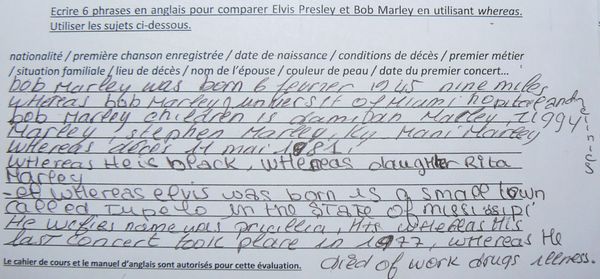 Ecrire 6 phrases en anglais pour comparer Elvis Presley et Bob Marley en utilisant whereas.
Utiliser les sujets ci-dessous.
nationalité / première chanson enregistrée / date de naissance / conditions de décès / premier métier
/ situation familiale / lieu de décès / nom de l'épouse / couleur de peau / date du premier concert...
bob Marley was born 6 fevrier 1945 nine miles
whereas bob Marley university of Miami hopital and
bob Marley children is damipan Marley, ziggy
Marley, stephen Marley, Ky-Mani Marley
whereas 11 mai 1981.
whereas He is black, whereas daughter Rita
Marley
- et whereas elvis was born is a small town
called Tupelo in the STATE of mississipi
He wifies name was priscillia, His whereas His
last concert took place in 1977, whereas He
died of work drugs illness.
Le cahier de cours et le manuel d'anglais sont autorisés pour cette évaluation.